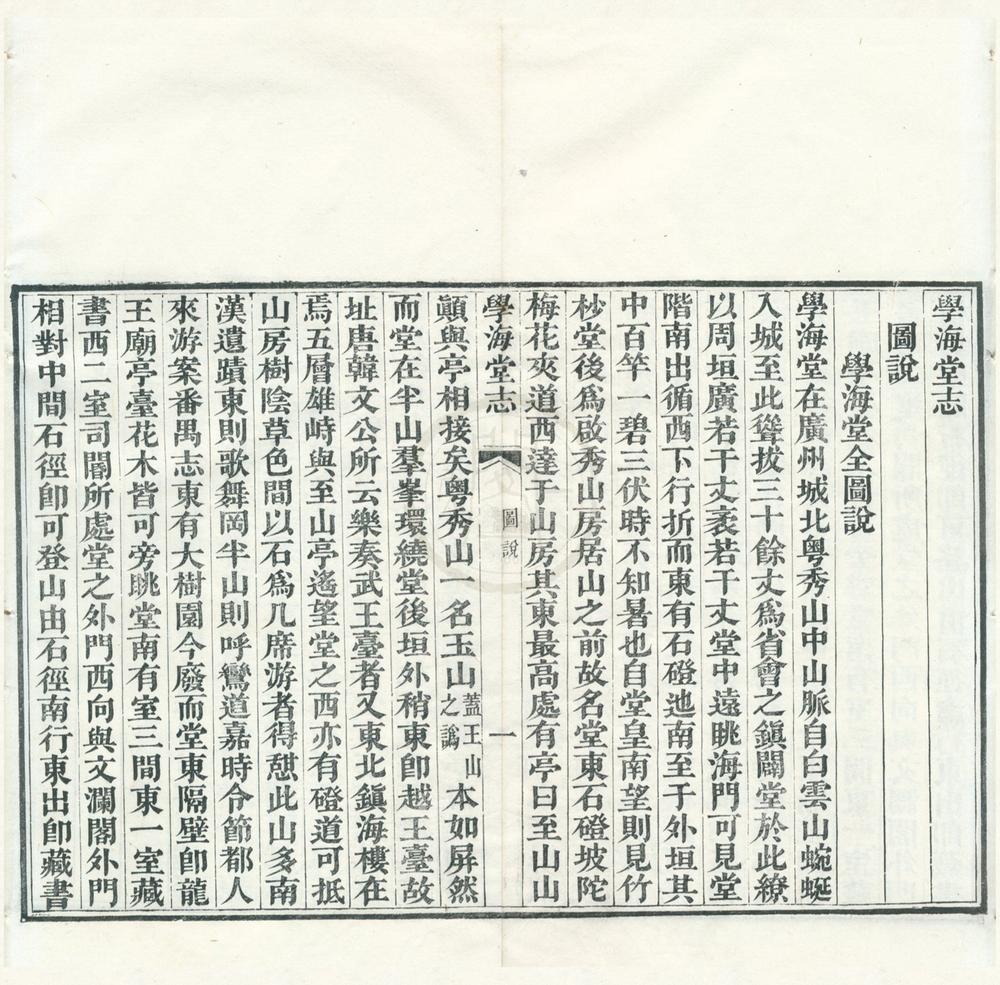 學海堂志
圖說
學海堂全圖說
學海堂在廣州城北粵秀山中山脈自白雲山蜿蜒
入城至此聳拔三十餘丈爲省會之鎭闢堂於此繚
以周垣廣若干丈袤若干丈堂中遠眺海門可見堂
階南出循西下行折而東有石磴迆南至于外垣其
中百竿一碧三伏時不知暑也自堂皇南望則見竹
杪堂後爲啟秀山房居山之前故名堂東石磴坡陀
梅花夾道西達于山房其東最高處有亭曰至山山
學海堂志
圖說
一
顚與亭相接矣粵秀山一名玉山蓋王山之譌本如屏然
而堂在半山羣峯環繞堂後垣外稍東卽越王臺故
址唐韓文公所云樂奏武王臺者又東北鎭海樓在
焉五層雄峙與至山亭遙望堂之西亦有磴道可抵
山房樹陰草色間以石爲几席游者得憩此山多南
漢遺蹟東則歌舞岡半山則呼鸞道嘉時令節都人
來游案番禺志東有大樹園今廢而堂東隔壁卽龍
王廟亭臺花木皆可旁眺堂南有室三間東一室藏
書西二室司閽所處堂之外門西向與文瀾閣外門
相對中間石徑卽可登山由石徑南行東出卽藏書